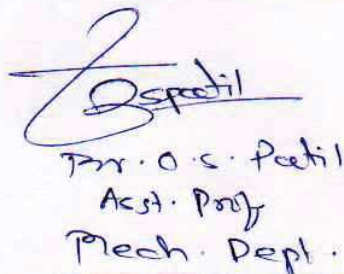 Ospatil
Dr. O. S. Patil
Asst. Prof
Mech. Dept.